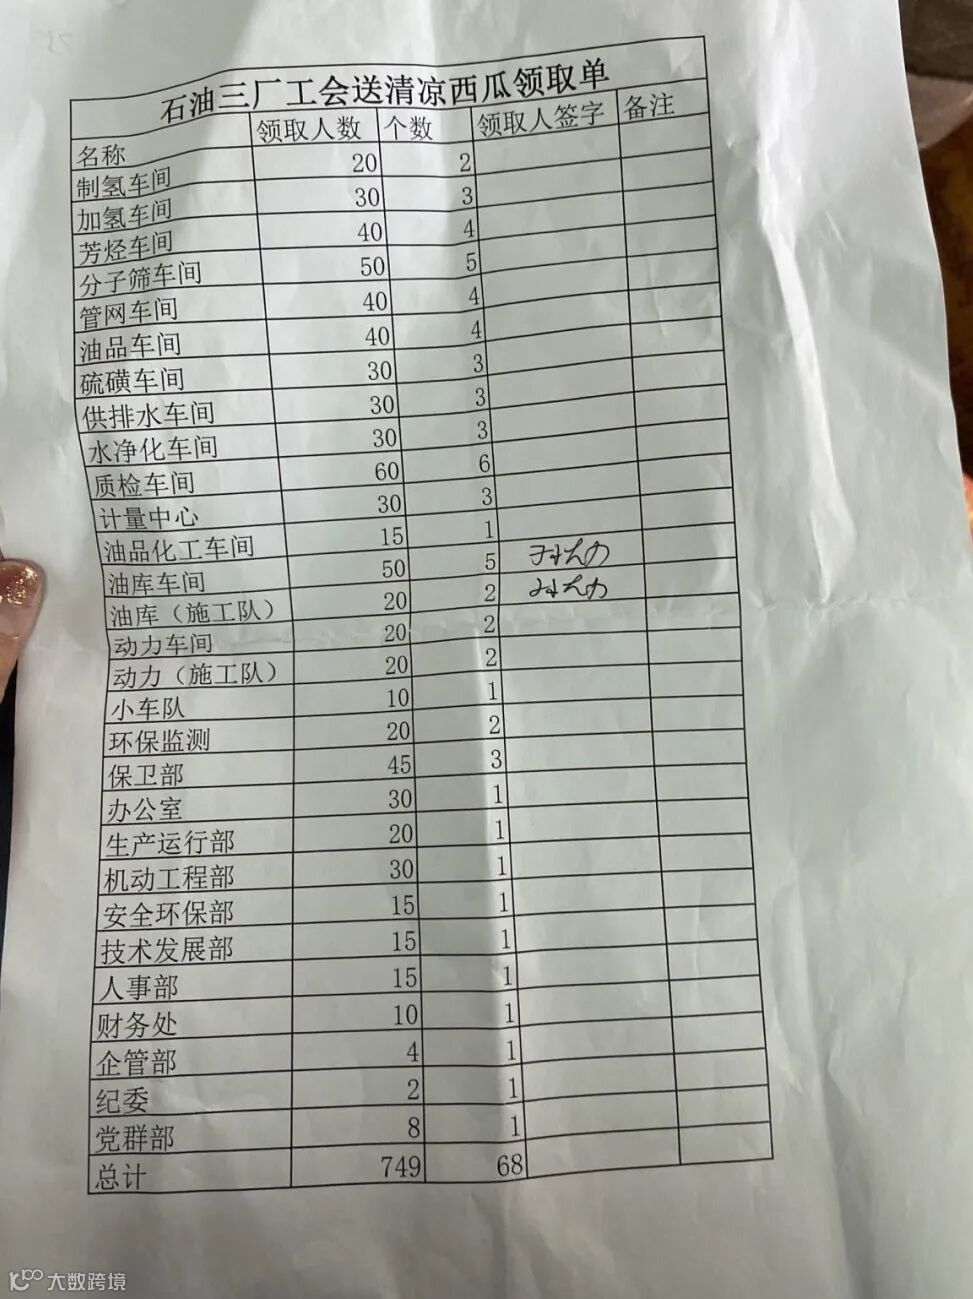 石油三厂工会送清凉西瓜领取单
名称 领取人数 个数 领取人签字 备注
制氢车间 20 2
加氢车间 30 3
芳烃车间 40 4
分子筛车间 50 5
管网车间 40 4
油品车间 40 4
硫磺车间 30 3
供排水车间 30 3
水净化车间 30 3
质检车间 60 6
计量中心 30 3
油品化工车间 15 1
油库车间 50 5
油库（施工队） 20 2
动力车间 20 2
动力（施工队） 20 2
小车队 10 1
环保监测 20 2
保卫部 45 3
办公室 30 1
生产运行部 20 1
机动工程部 30 1
安全环保部 15 1
技术发展部 15 1
人事部 15 1
财务处 10 1
企管部 4 1
纪委 2 1
党群部 8 1
总计 749 68
大数跨境